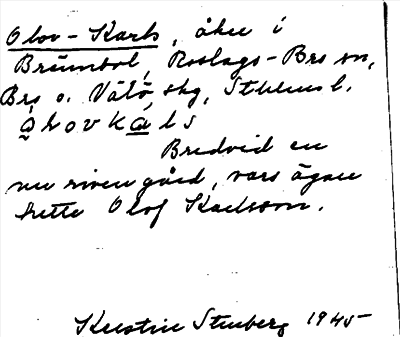 Olov-Karls, åker i
Brümbol, Roslags-Bro sn,
Bro o. Vätö skg, Sthlms l.
å l o v k a l s
Bredvid en
nu riven gård, vars ägare
hette Olof Karlsson.
Kerstin Stenberg 1945